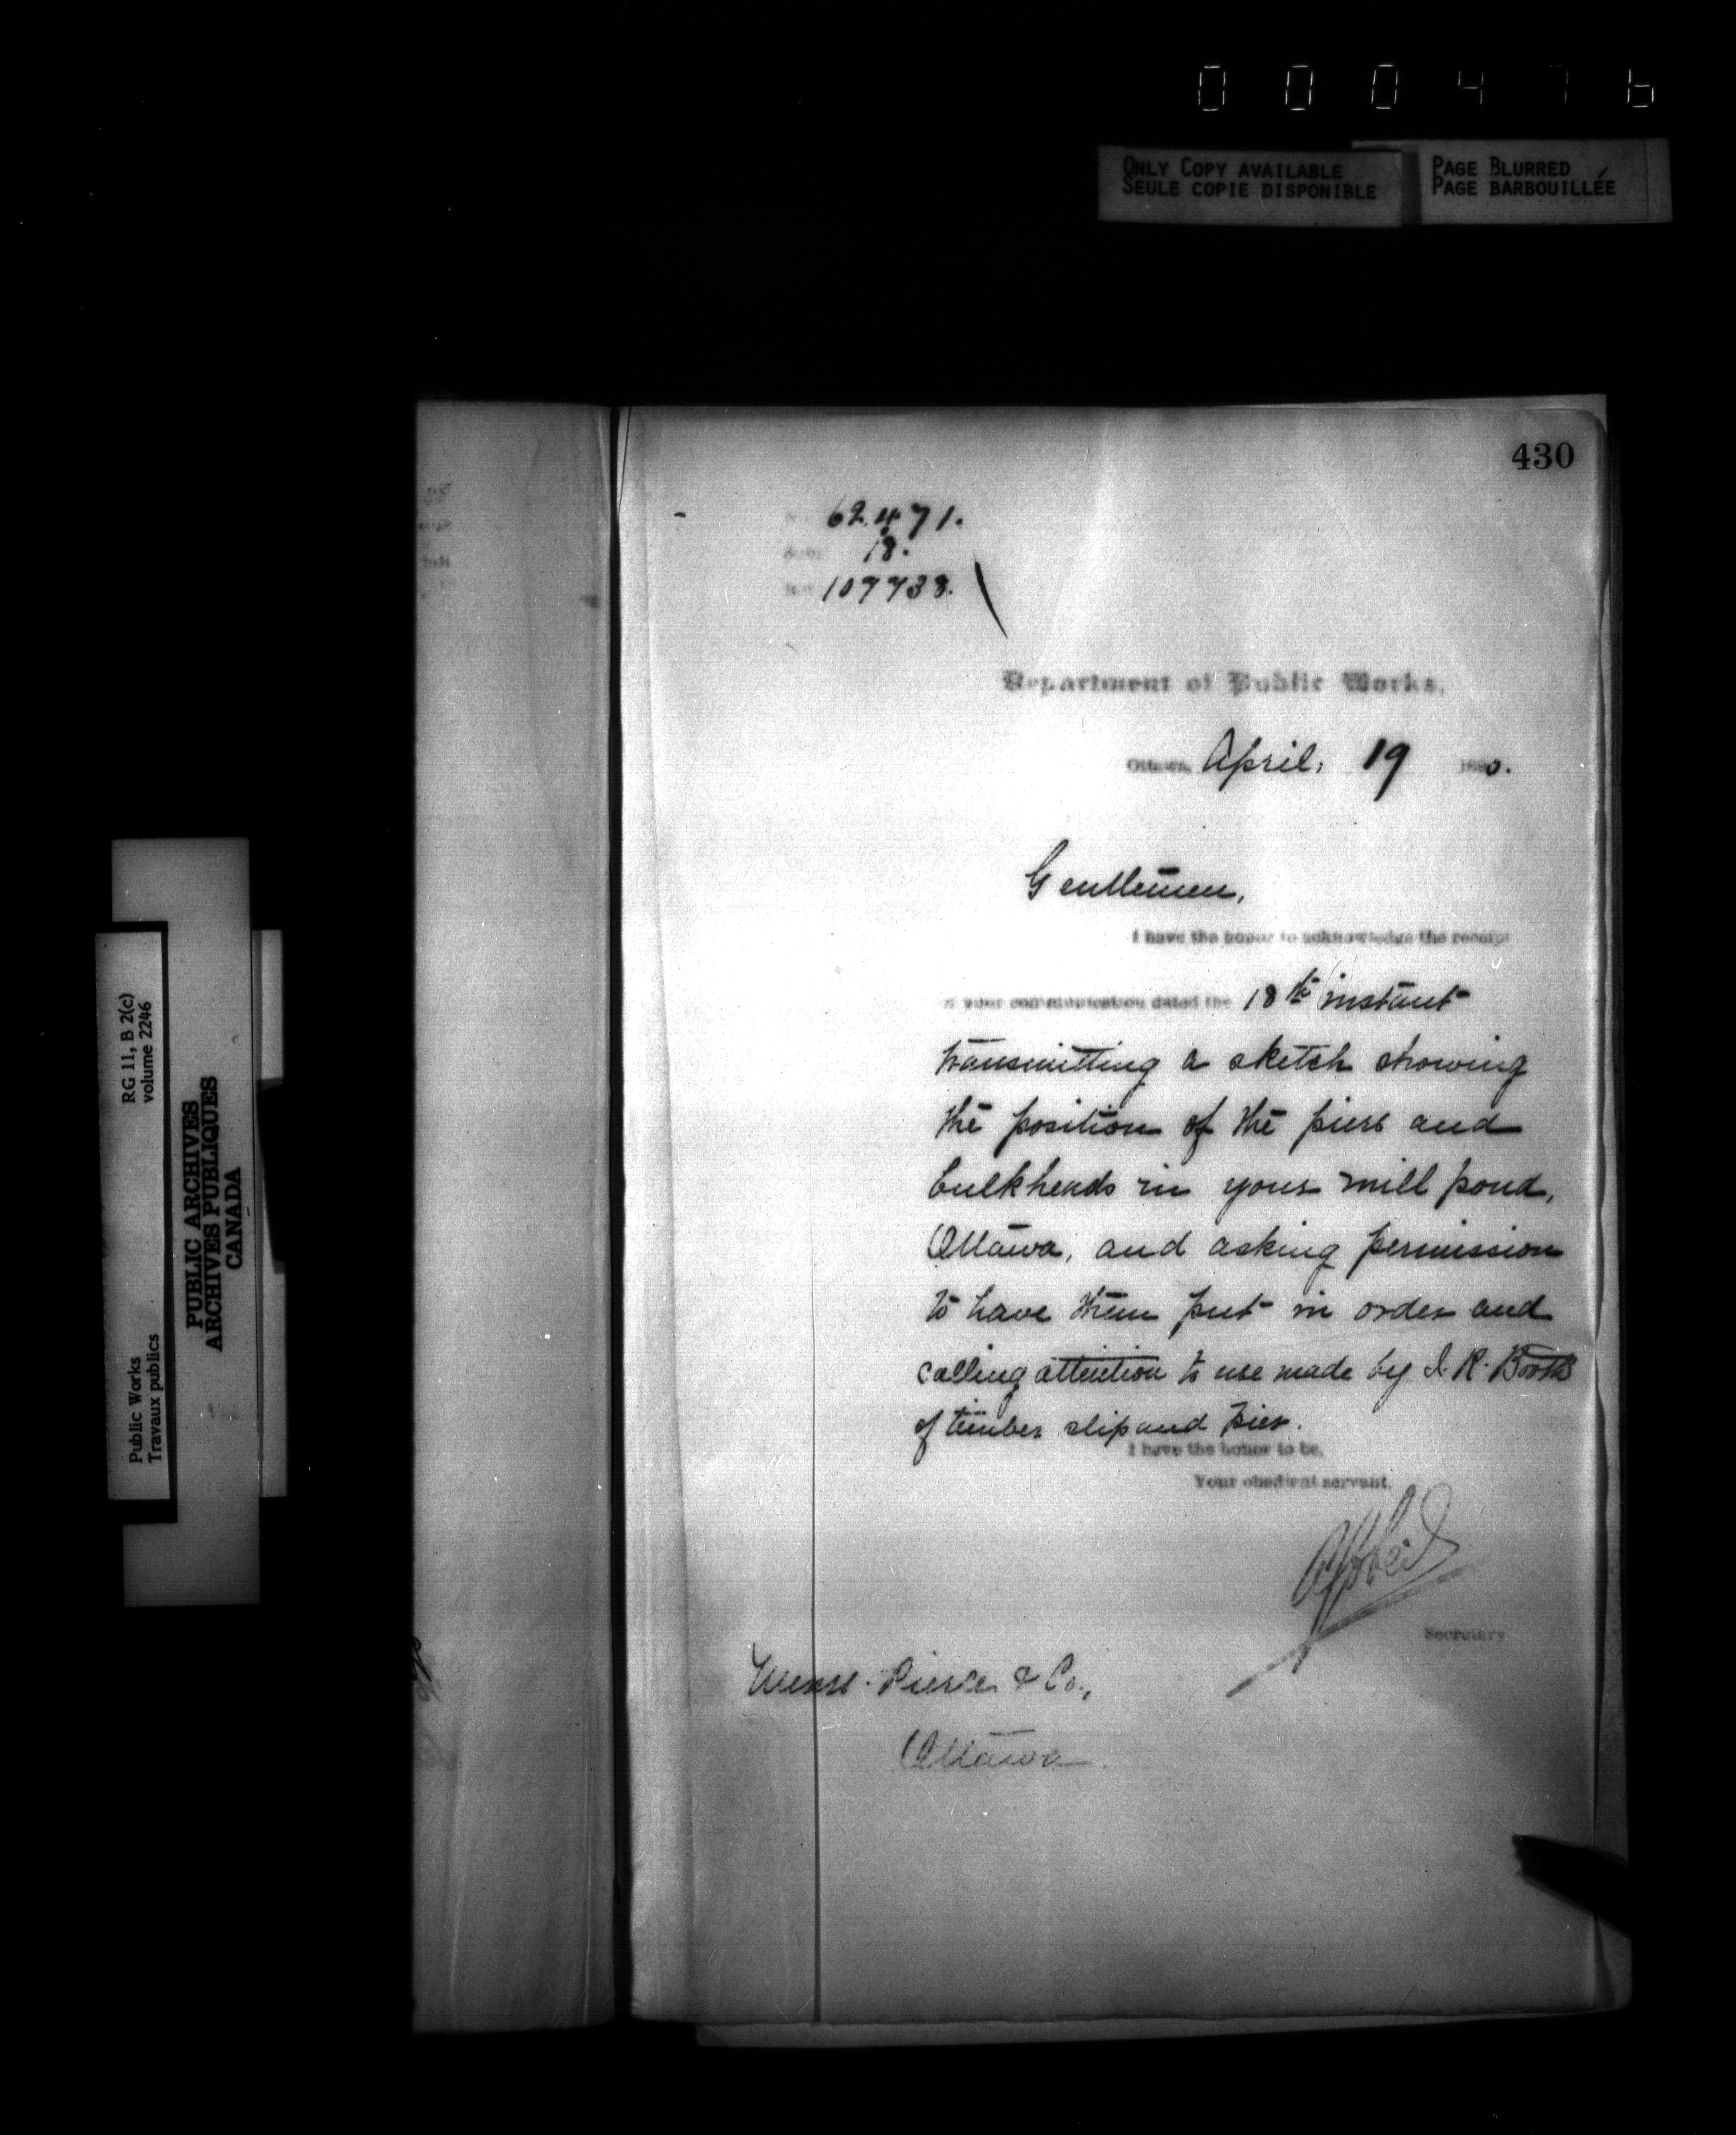 0 0 0 4 7 6
ONLY COPY AVAILABLE
SEULE COPIE DISPONIBLE
PAGE BLURRED
PAGE BARBOUILLÉE
430
62471.
18.
107738.
Department of Public Works.
Ottawa, April, 19 1890.
Gentlemen,
I have the honor to acknowledge the receipt
of your communication dated the 18th instant
transmitting a sketch showing
the position of the piers and
bulkheads in your mill pond,
Ottawa, and asking permission
to have them put in order and
calling attention to use made by J. R. Booth
of timber slip and pier.
I have the honor to be,
Your obedient servant,
Secretary
Messrs. Pierce & Co.,
Ottawa.
Public Works
Travaux publics
RG 11, B 2(c)
volume 2246
PUBLIC ARCHIVES
ARCHIVES PUBLIQUES
CANADA